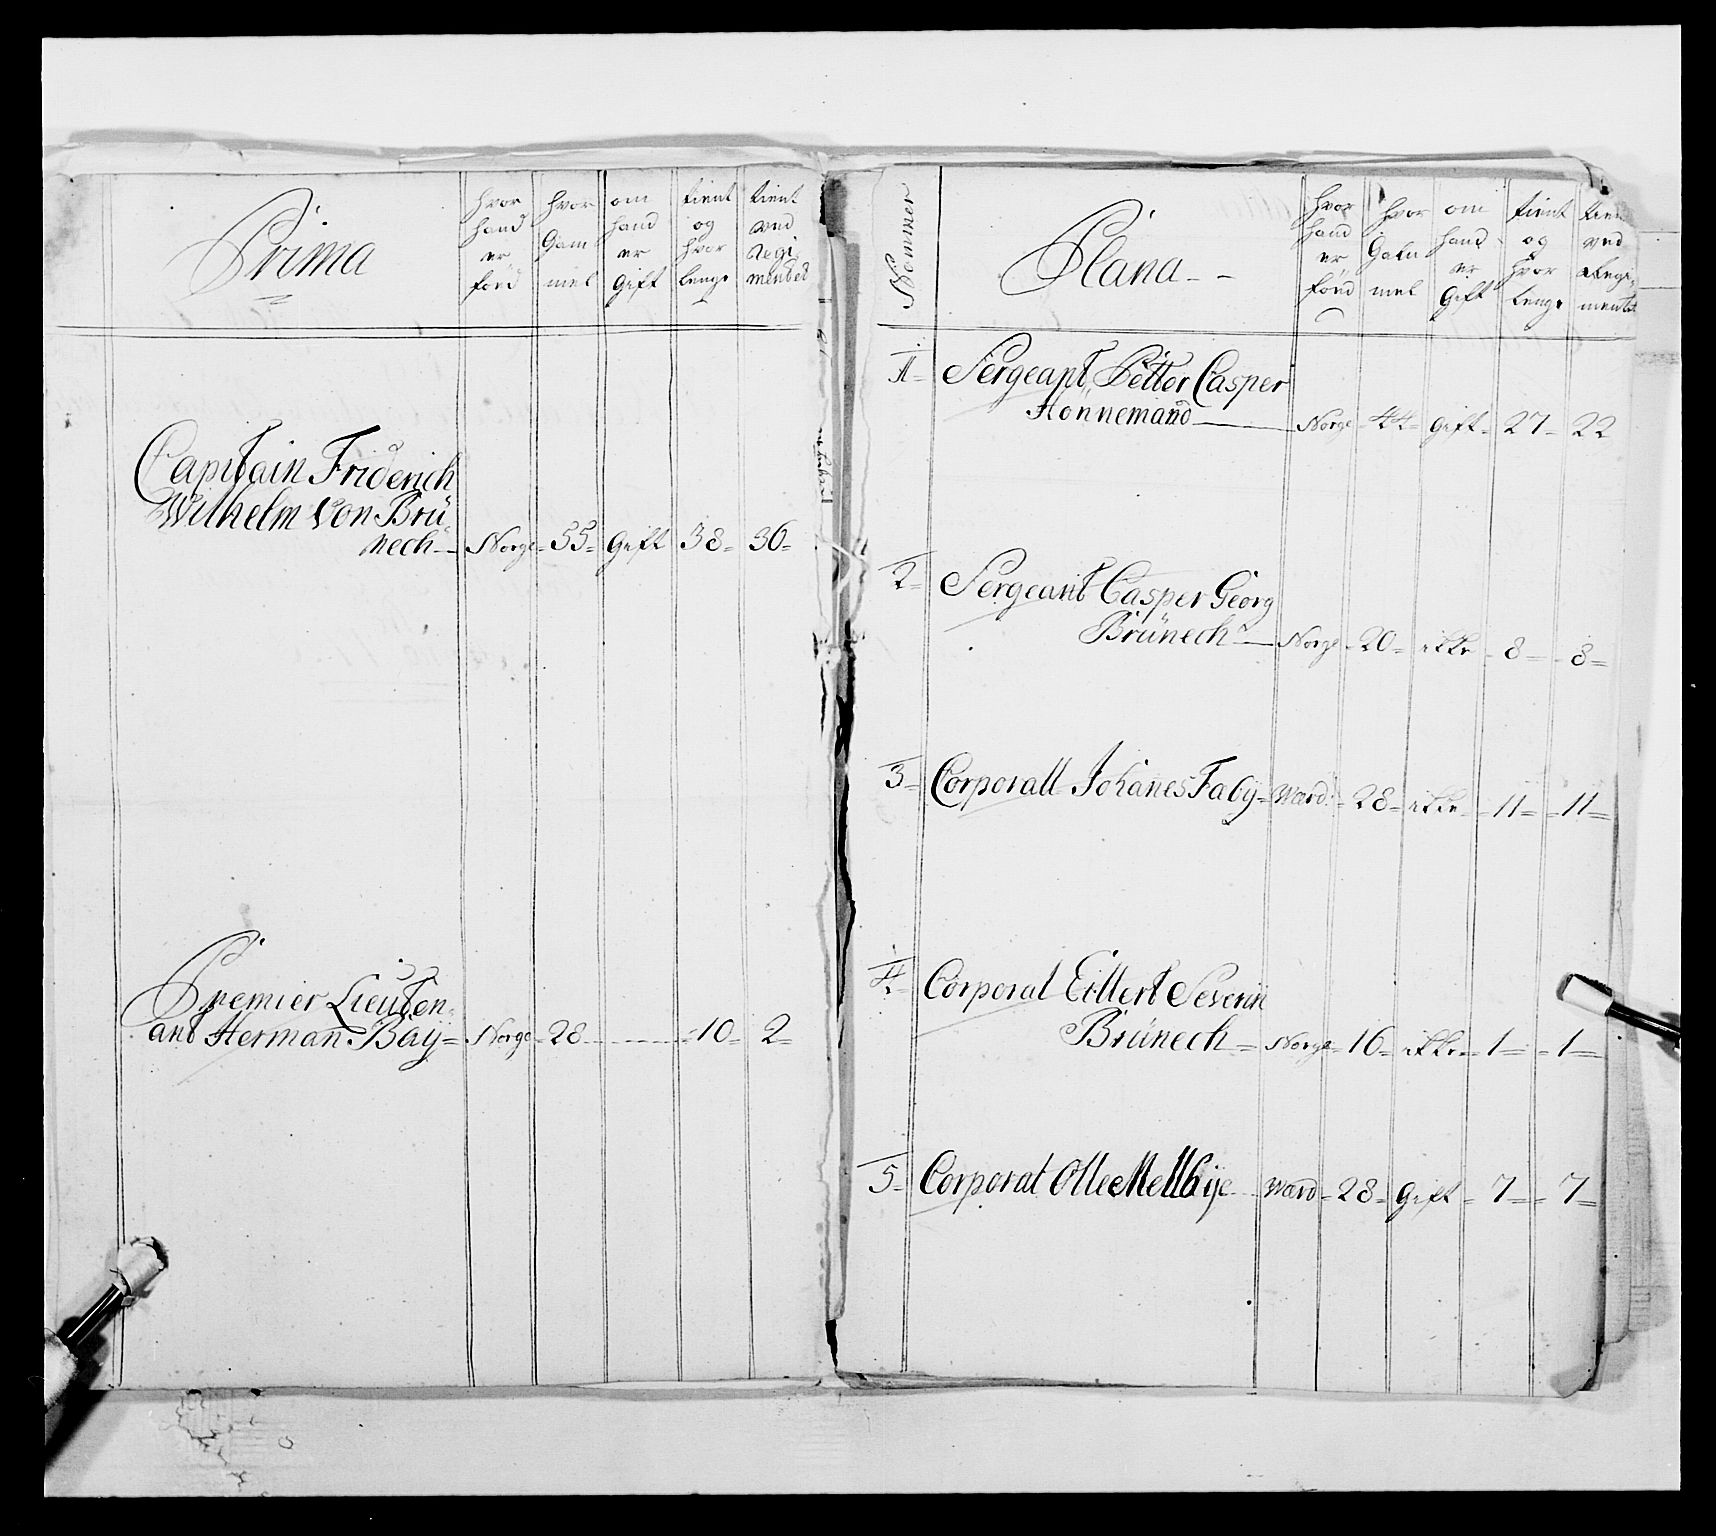 Prima
hvor hand er förd
hvor Gam mel
om hand er Gift
tient og hvor lenge
tient ved Regi mendet
Capitain Friderich
Wilhelm von Brü
nech - Norge - 55 - Gift 38 - 36 -
Premier Lieuten
ant Herman Bay - Norge - 28 - 10 - 2 -
Nommer
Plana - -
hvor hand er förd
hvor Galm mel
om hand er Gift
tient og hvor lenge
ved Regi mentet
1 - Sergeant Petter Casper
Hönnemand - Norge - 44 - Gift - 27 - 22
2 - Sergeant Casper Georg
Brünech - Norge - 20 - ikke - 8 - 8 -
3 - Corporall Johanes Faby - Værd - 28 - ikke - 11 - 11 -
4 - Corporal Eillert Severin
Brünech - Norge - 16 - ikke - 1 - 1 -
5 - Corporal Olle Mellbye - Værd - 28 - Gift - 7 - 7 -